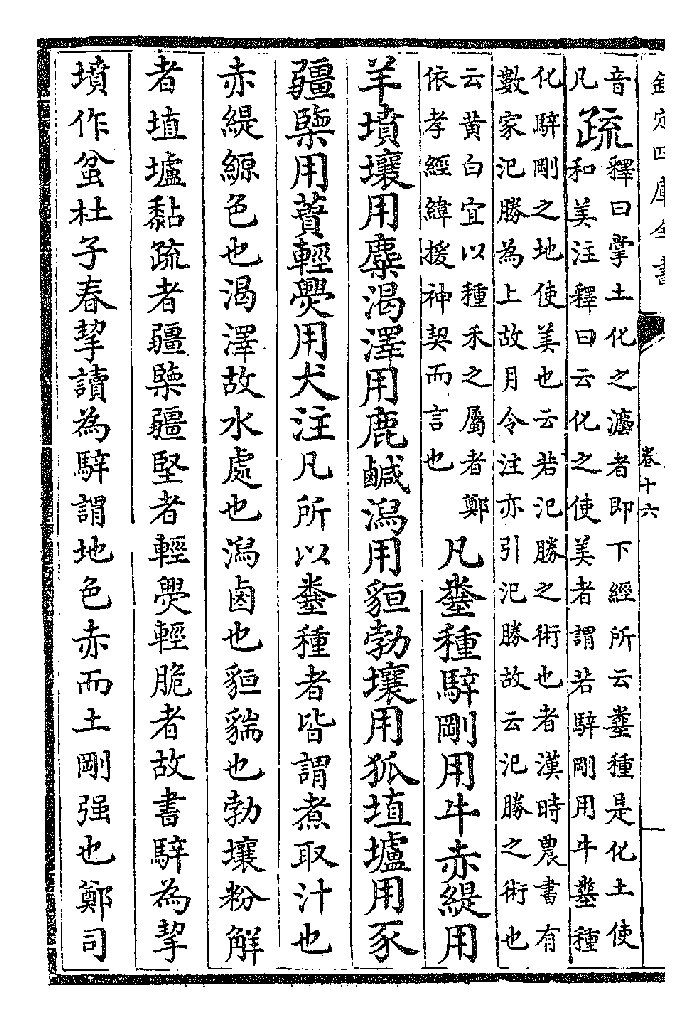 欽定四庫全書
卷十六
音
凡
疏
釋曰掌土化之灋者即下經所云糞種是化土使
和美注釋曰云化之使美者謂若騂剛用牛糞種
化騂剛之地使美也云若氾勝之術也者漢時農書有
數家氾勝為上故月令注亦引氾勝故云氾勝之術也
云黄白宜以種禾之屬者鄭
依孝經緯援神契而言也
凡糞種騂剛用牛赤緹用
羊墳壤用麋渴澤用鹿鹹潟用貆勃壤用狐埴壚用豕
疆㯺用蕡輕㷰用犬注凡所以糞種者皆謂煮取汁也
赤緹縓色也渴澤故水處也潟鹵也貆貒也勃壤粉解
者埴壚黏疏者疆㯺疆堅者輕㷰輕脆者故書騂為挈
墳作蚠杜子春挈讀為騂謂地色赤而土剛强也鄭司